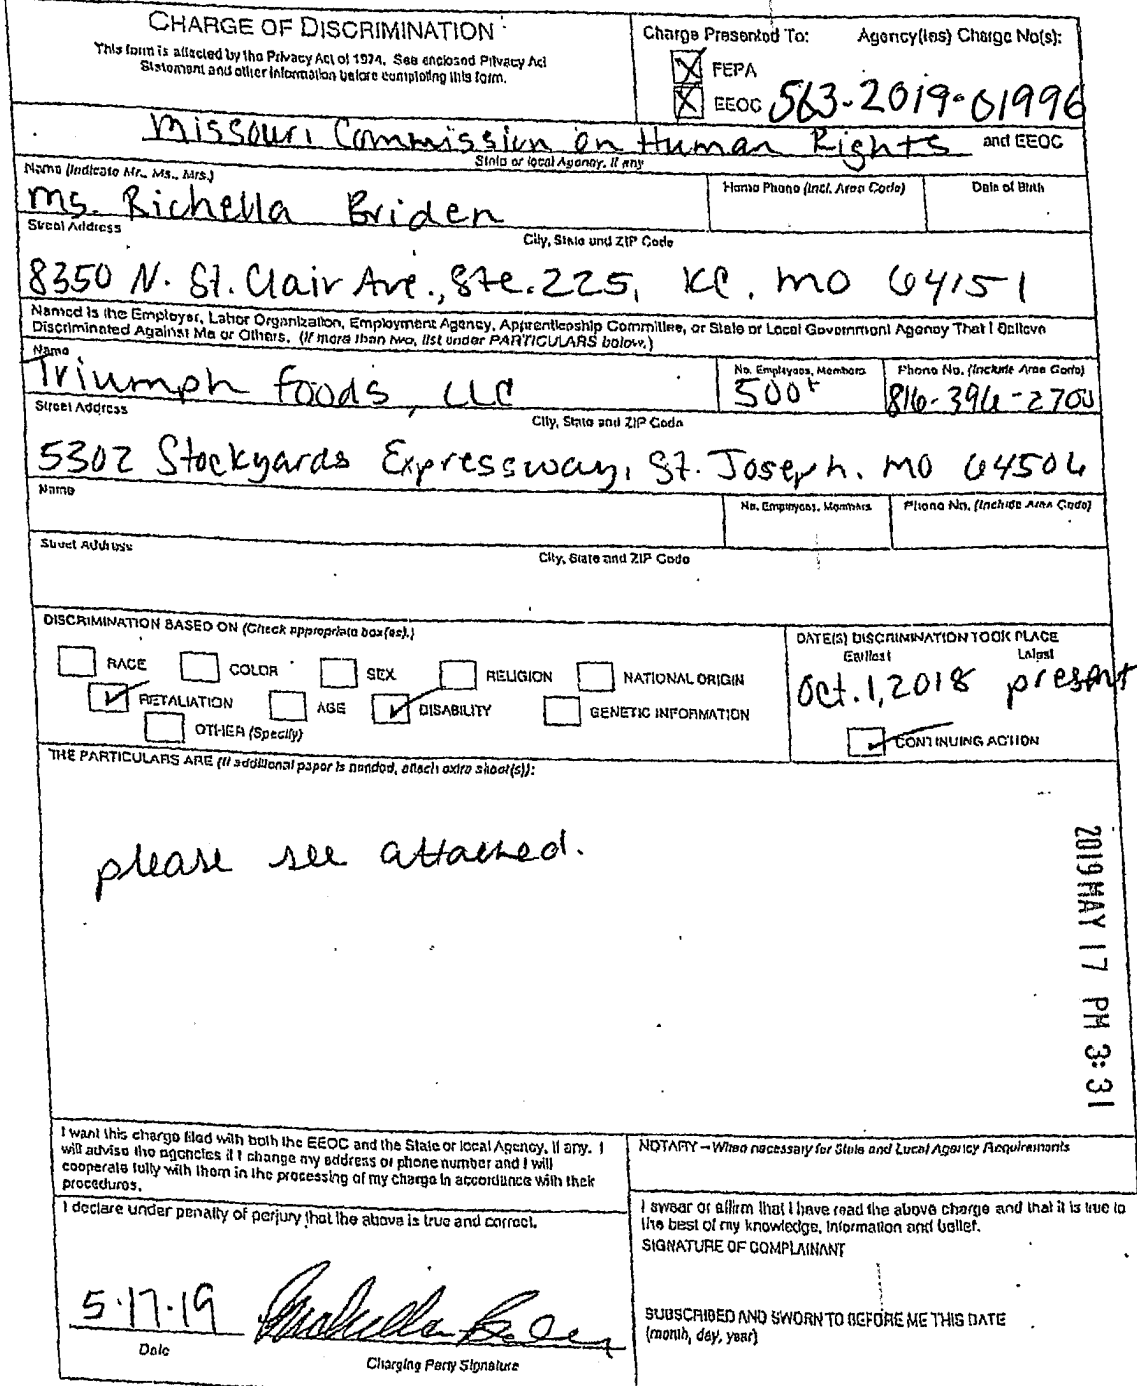 CHARGE OF DISCRIMINATION
This form is affected by the Privacy Act of 1974. See enclosed Privacy Act
Statement and other information before completing this form.
Charge Presented To: Agency(ies) Charge No(s):
FEPA
EEOC 563-2019-01996
Missouri Commission on Human Rights and EEOC
State or local Agency, if any
Name (Indicate Mr., Ms., Mrs.)
Home Phone (Incl. Area Code)
Date of Birth
Ms. Richella Briden
Street Address
City, State and ZIP Code
8350 N. St. Clair Ave., Ste. 225, KC, MO 64151
Named is the Employer, Labor Organization, Employment Agency, Apprenticeship Committee, or State or Local Government Agency That I Believe
Discriminated Against Me or Others. (If more than two, list under PARTICULARS below.)
Name
No. Employees, Members
Phone No. (Include Area Code)
Triumph Foods, LLC
500+
816-396-2700
Street Address
City, State and ZIP Code
5302 Stockyards Expressway, St. Joseph, MO 64504
Name
No. Employees, Members
Phone No. (Include Area Code)
Street Address
City, State and ZIP Code
DISCRIMINATION BASED ON (Check appropriate box(es).)
DATE(S) DISCRIMINATION TOOK PLACE
Earliest Latest
RACE COLOR SEX RELIGION NATIONAL ORIGIN
Oct. 1, 2018 present
RETALIATION AGE DISABILITY GENETIC INFORMATION
OTHER (Specify)
CONTINUING ACTION
THE PARTICULARS ARE (If additional paper is needed, attach extra sheet(s)):
please see attached.
2019 MAY 17 PM 3:31
I want this charge filed with both the EEOC and the State or local Agency, if any. I
will advise the agencies if I change my address or phone number and I will
cooperate fully with them in the processing of my charge in accordance with their
procedures.
NOTARY – When necessary for State and Local Agency Requirements
I declare under penalty of perjury that the above is true and correct.
I swear or affirm that I have read the above charge and that it is true to
the best of my knowledge, information and belief.
SIGNATURE OF COMPLAINANT
5-17-19
Date
Charging Party Signature
SUBSCRIBED AND SWORN TO BEFORE ME THIS DATE
(month, day, year)